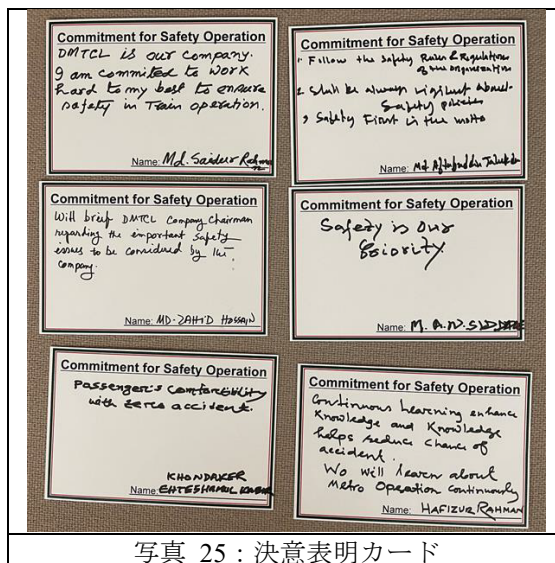 Commitment for Safety Operation
DMTCL is our company.
I am commited to work
hard to my best to ensure
safety in Train operation.
Name: Md. Saidur Rahman
Commitment for Safety Operation
1. Follow the Safety Rules & Regulations
of the organization
2 Shall be always vigilent about
Safety policies
3 Safety First is the motto
Name: Md
Commitment for Safety Operation
Will brief DMTCL Company Chairman
regarding the important safety
issues to be considered by the
company.
Name: MD. ZAHID HOSSAIN
Commitment for Safety Operation
Safety is Our
Priority
Name: M. A. N.
Commitment for Safety Operation
Passenger's Comfortibility
with zero accident.
KHONDAKER
Name: EHTESHAMUL KABIR
Commitment for Safety Operation
Continuous Learning enhance
Knowledge and Knowledge
helps reduce chance of
accident.
We Will learn about
Metro Operation continuously
Name: HAFIZUR RAHMAN
写真 25：決意表明カード